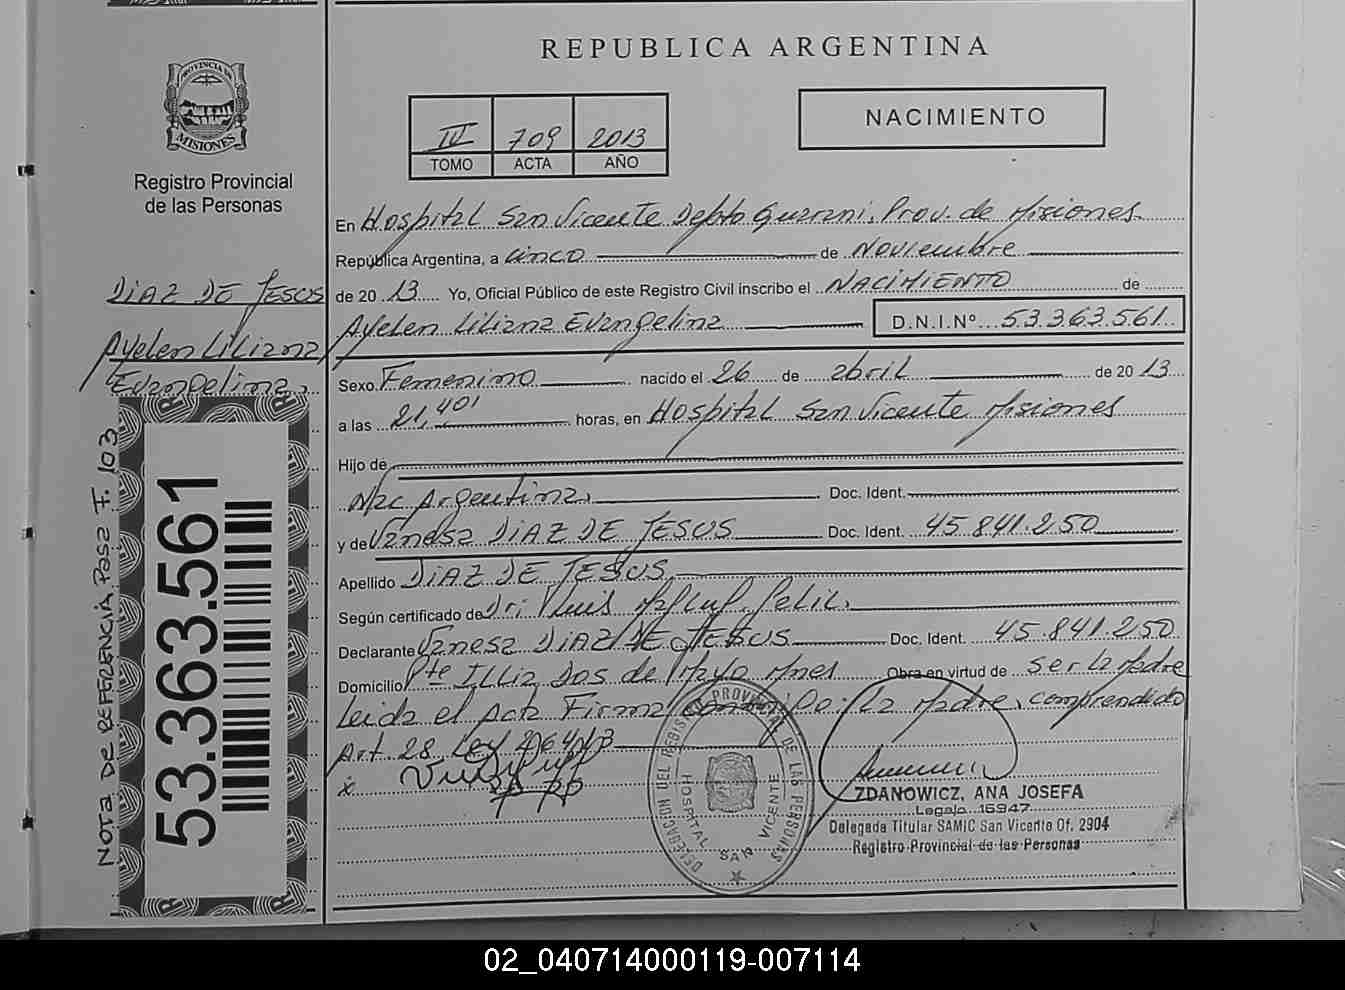 REPUBLICA ARGENTINA
PROVINCIA DE
MISIONES
Registro Provincial
de las Personas
IV 709 2013
TOMO ACTA AÑO
NACIMIENTO
En Hospital San Vicente Depto Guarani, Prov. de Misiones
República Argentina, a cinco de Noviembre
de 20 13 Yo, Oficial Público de este Registro Civil inscribo el NACIMIENTO de
Ayelen Liliana Evangelina D.N.I.Nº 53.363.561
DIAZ DE JESUS
Ayelen Liliana
Evangelina
Sexo Femenino nacido el 26 de abril de 20 13
a las 21,40' horas, en Hospital San Vicente Misiones
Hijo de
Nac Argentina, Doc. Ident.
y de Vanesa DIAZ DE JESUS Doc. Ident. 45.841.250
Apellido DIAZ DE JESUS,
Según certificado de Dr: Luis
Declarante Vanesa DIAZ DE JESUS Doc. Ident. 45.841.250
Domicilio Pte Illia Dos de Mayo Mnes Obra en virtud de ser la Madre
Leida el Acta Firma Por la Madre, comprendido
Art. 28 Ley
x
53.363.561
NOTA DE REFERENCIA Pasa F. 103
DELEGACION DEL REGISTRO PROVINCIAL DE LAS PERSONAS
HOSPITAL SAN VICENTE
ZDANOWICZ, ANA JOSEFA
Legajo 16947
Delegada Titular SAMIC San Vicente Of. 2904
Registro Provincial de las Personas
02_040714000119-007114